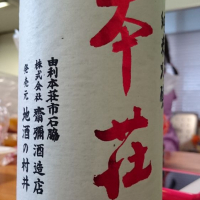 本荘
由利本荘市石脇
株式会社 齋彌酒造店
発売元 地酒の村井